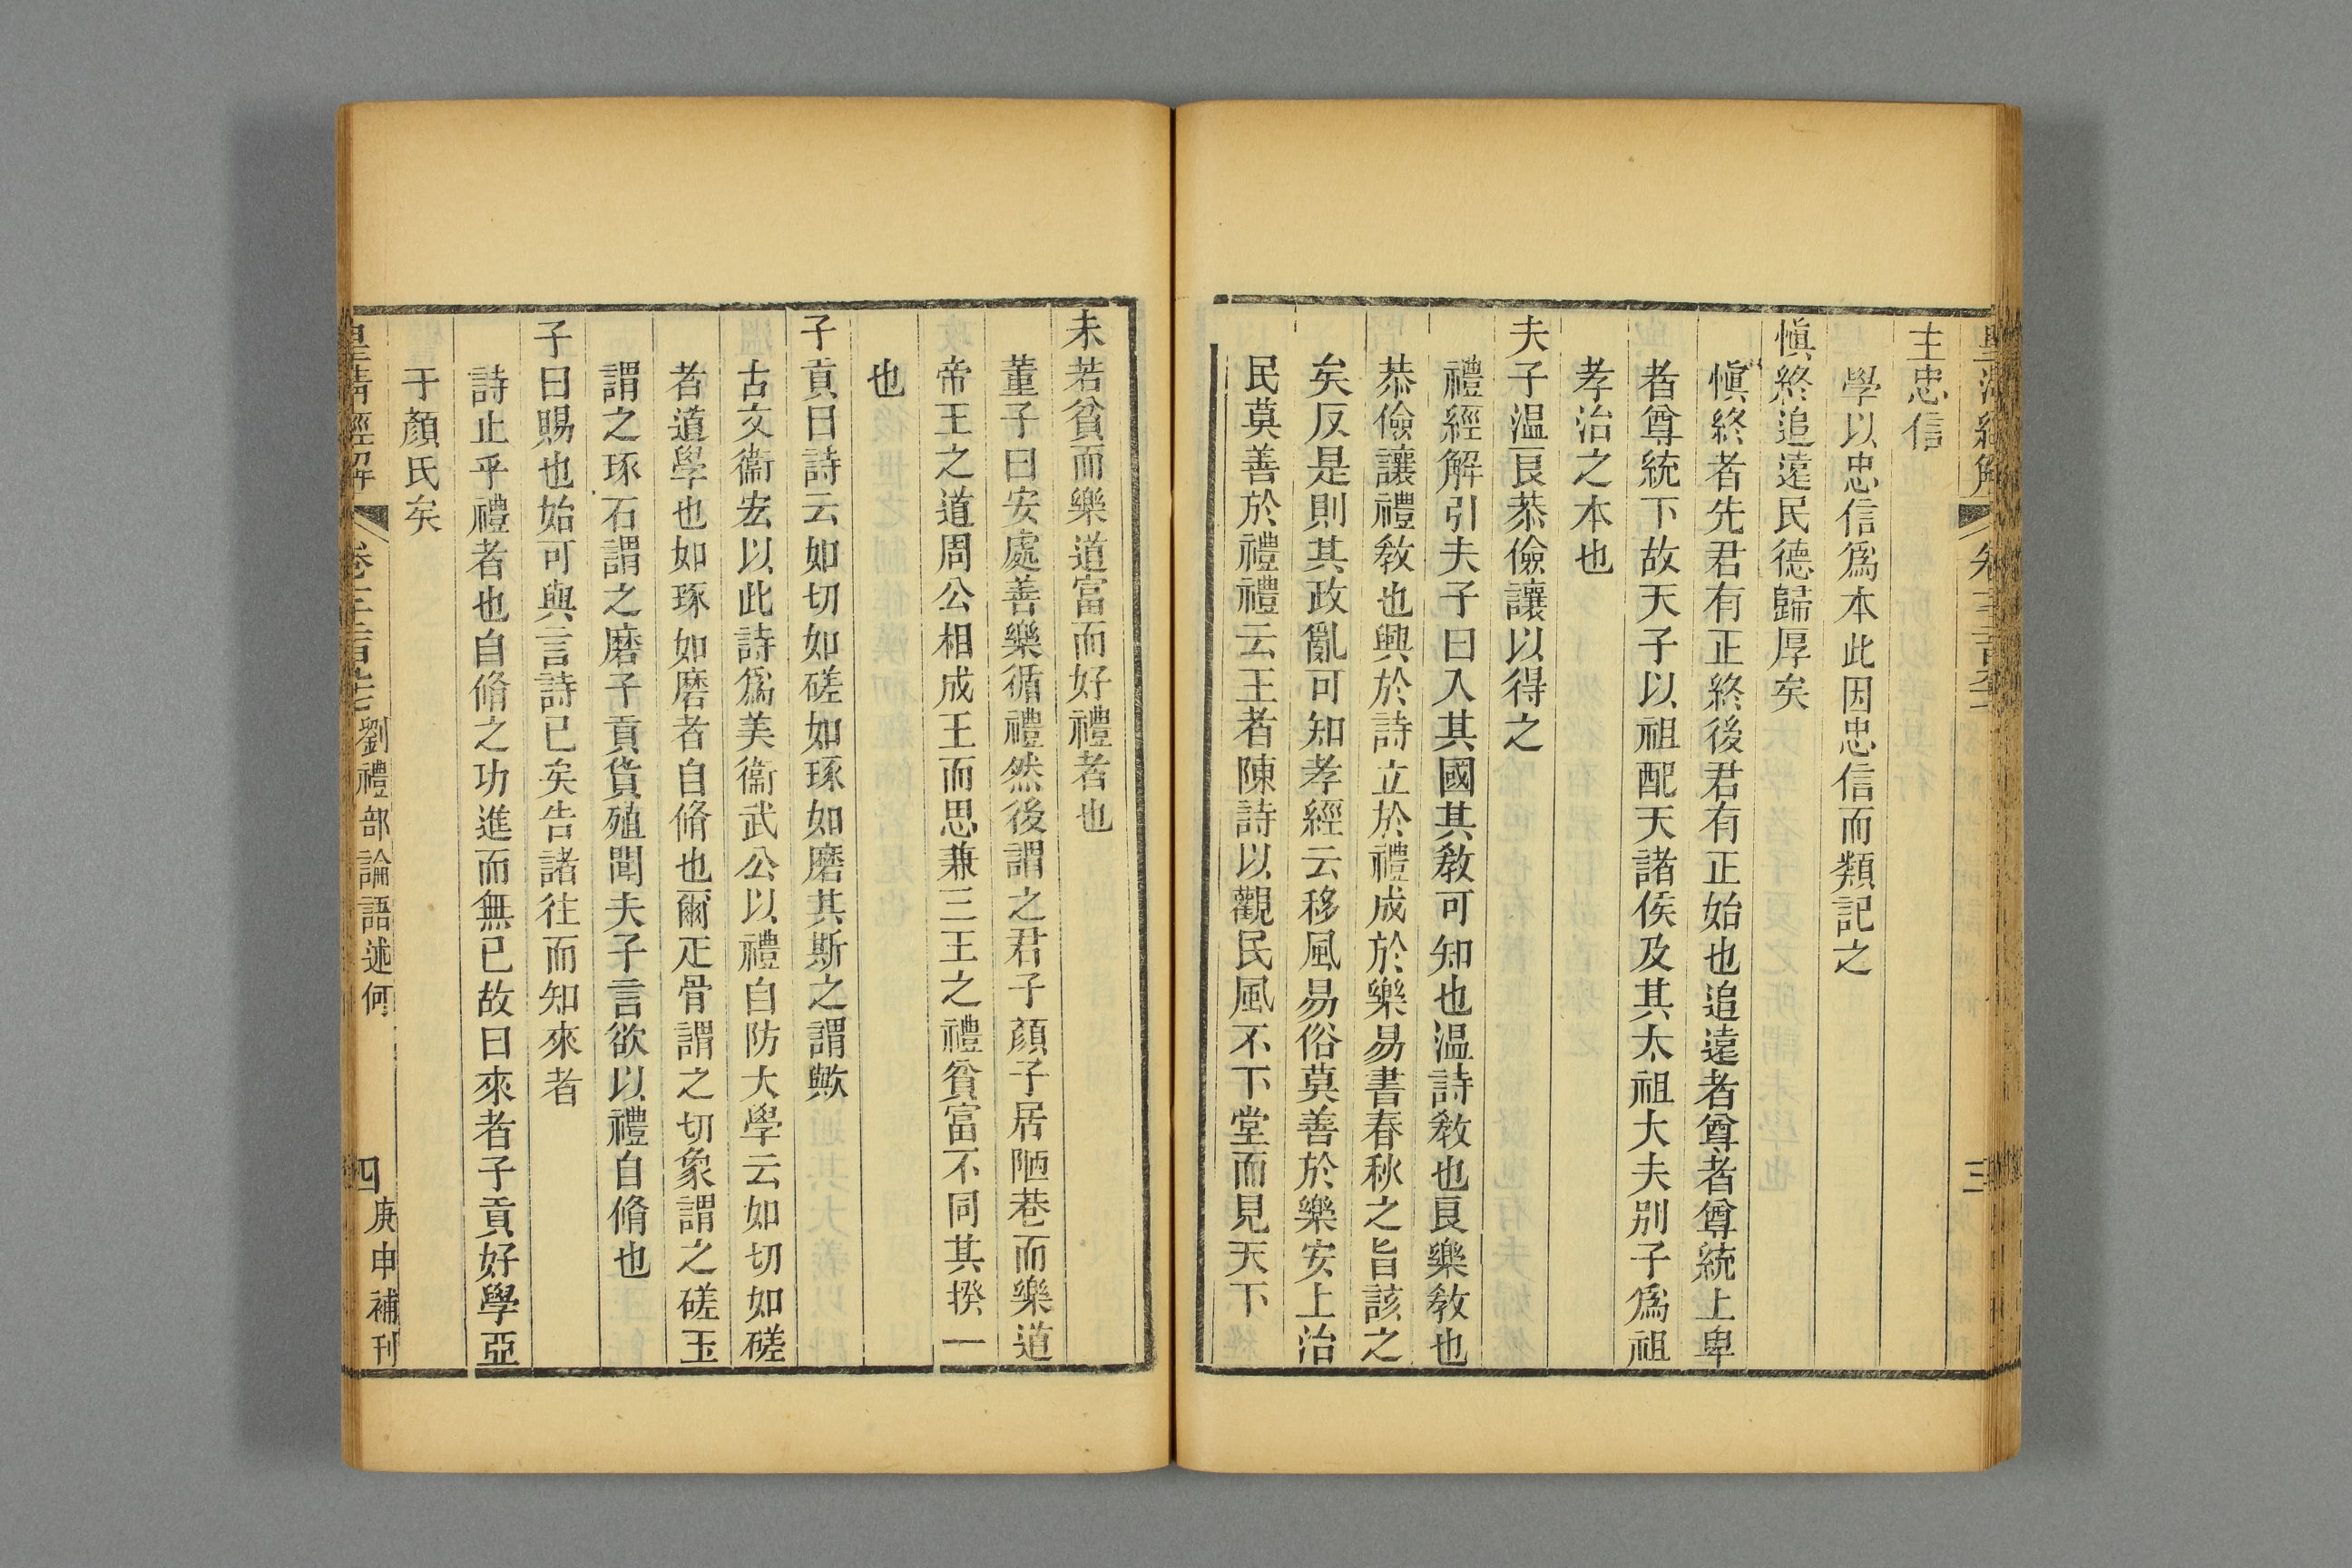 主忠信
學以忠信爲本此因忠信而類記之
愼終追遠民德歸厚矣
愼終者先君有正終後君有正始也追遠者尊者尊統上卑
者尊統下故天子以祖配天諸侯及其太祖大夫別子爲祖
孝治之本也
夫子溫良恭儉讓以得之
禮經解引夫子曰入其國其敎可知也溫詩敎也良樂敎也
恭儉讓禮敎也興於詩立於禮成於樂易書春秋之旨該之
矣反是則其政亂可知孝經云移風易俗莫善於樂安上治
民莫善於禮禮云王者陳詩以觀民風不下堂而見天下
三
未若貧而樂道富而好禮者也
董子曰安處善樂循禮然後謂之君子顏子居陋巷而樂道
帝王之道周公相成王而思兼三王之禮貧富不同其揆一
也
子貢曰詩云如切如磋如琢如磨其斯之謂歟
古文衞宏以此詩爲美衞武公以禮自防大學云如切如磋
者道學也如琢如磨者自脩也爾疋骨謂之切象謂之磋玉
謂之琢石謂之磨子貢貨殖聞夫子言欲以禮自脩也
子曰賜也始可與言詩已矣告諸往而知來者
詩止乎禮者也自脩之功進而無已故曰來者子貢好學亞
于顏氏矣
皇淸經解
劉禮部論語述何
四
庚申補刊